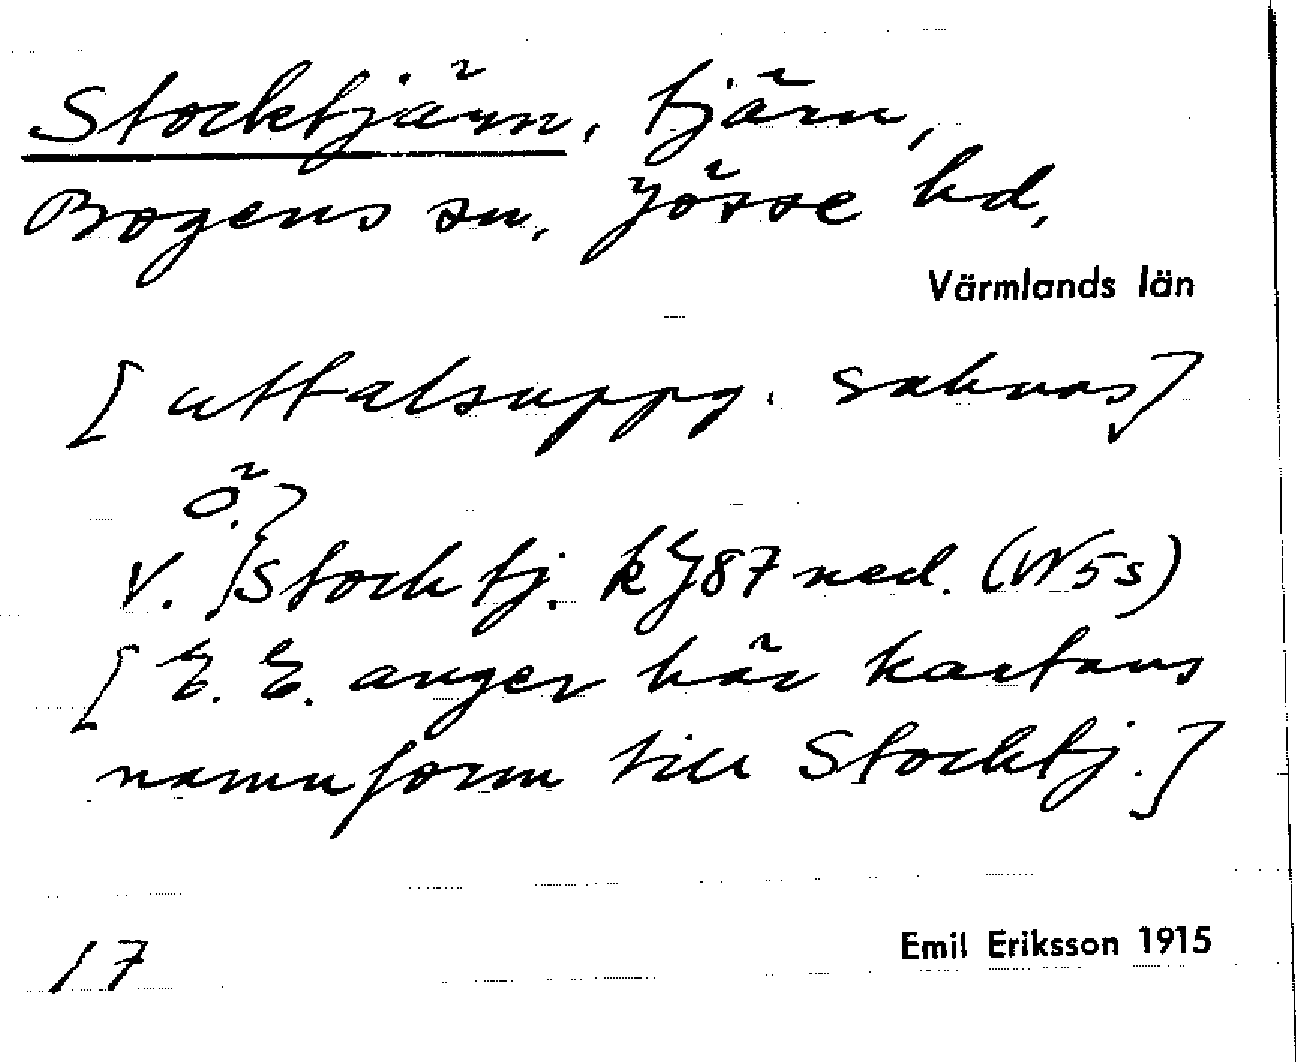 Stocktjärn, tjärn,
Bogens sn, Jösse hd,
Värmlands län
[uttalsuppg. saknas]
Ö.}
V. {Stocktj. kJ87 ned. (W5s)
[E. E. anger här kartans
namnform till Stocktj.]
17
Emil Eriksson 1915